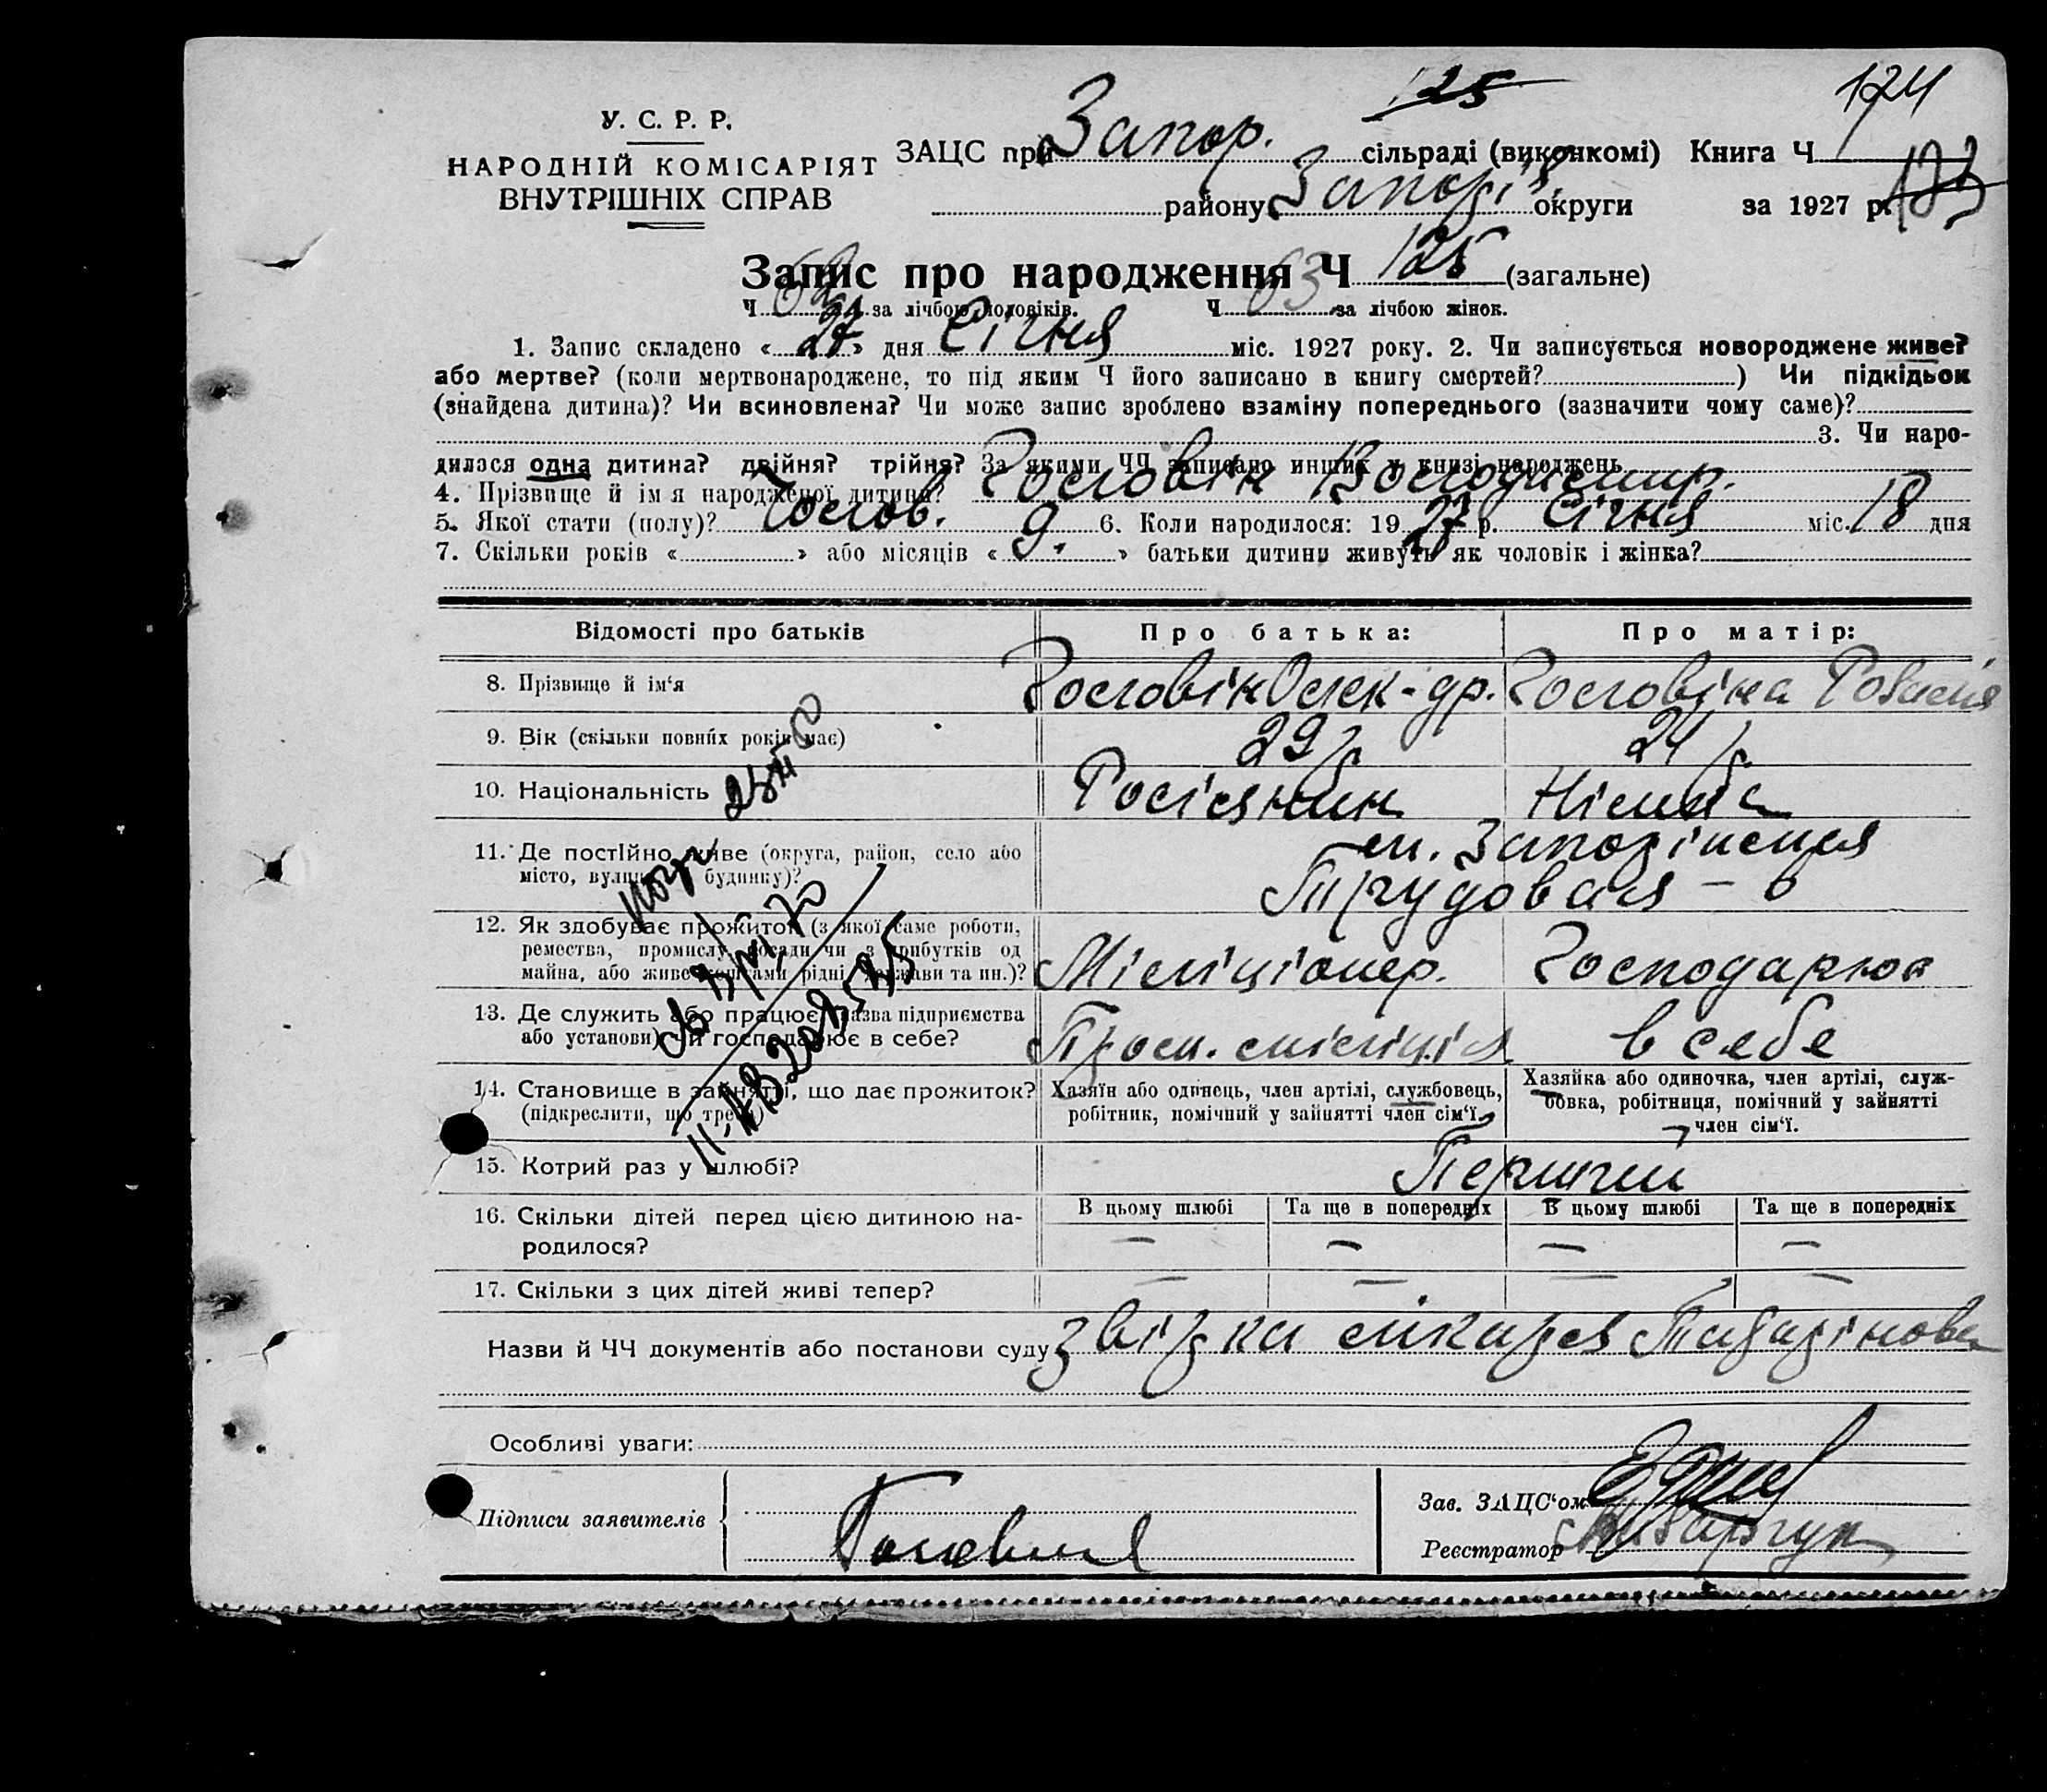 125
174
У. С. Р. Р.
НАРОДНІЙ КОМІСАРІЯТ
ВНУТРІШНІХ СПРАВ
ЗАЦС при Запор. сільраді (виконкомі) Книга Ч
району Запоріз. округи за 1927 р. 123
Запис про народження Ч 125 (загальне)
Ч 62 за лічбою чоловіків. Ч 63 за лічбою жінок.
1. Запис складено « 27 » дня Січня міс. 1927 року. 2. Чи записується новороджене живе?
або мертве? (коли мертвонароджене, то під яким Ч його записано в книгу смертей? ) Чи підкідьок
(знайдена дитина)? Чи всиновлена? Чи може запис зроблено взаміну попереднього (зазначити чому саме)?
3. Чи наро-
дилася одна дитина? двійня? трійня? За якими ЧЧ записано инших у книзі народжень
4. Прізвище й ім я народженої дитини? Головін Володимир.
5. Якої стати (полу)? Чолов. 6. Коли народилося: 19 27 р. Січня міс. 18 дня
7. Скільки років « » або місяців « 9. » батьки дитини живуть як чоловік і жінка?
Відомості про батьків Про батька: Про матір:
8. Прізвище й ім‘я Головін Олек-др. Головіна
9. Вік (скільки повних років має) 29 р. 24 р.
10. Національність Росіянин Німка
11. Де постійно живе (округа, район, село або м. Запоріжжя
місто, вулиця, будинку)? Трудовая – 6
12. Як здобуває прожиток (з якої саме роботи,
ремества, промислу, посади чи з прибутків од
майна, або живе коштами рідні, держави та ин.)? Міліціонер. Господарює
13. Де служить або працює (назва підприємства
або установи) чи господарює в себе? Пром. міліція в себе
14. Становище в занятті, що дає прожиток? Хазяїн або одинець, член артілі, службовець, Хазяйка або одиночка, член артілі, служ-
(підкреслити, що треба) робітник, помічний у зайнятті член сім‘ї. бовка, робітниця, помічний у зайнятті
член сім‘ї.
15. Котрий раз у шлюбі? Перший
16. Скільки дітей перед цією дитиною на- В цьому шлюбі Та ще в попередніх В цьому шлюбі Та ще в попередніх
родилося? — — — —
17. Скільки з цих дітей живі тепер? — — — —
Назви й ЧЧ документів або постанови суду звізка лікаря
Особливі уваги:
Підписи заявителів
Зав. ЗАЦС‘ом
Реєстратор